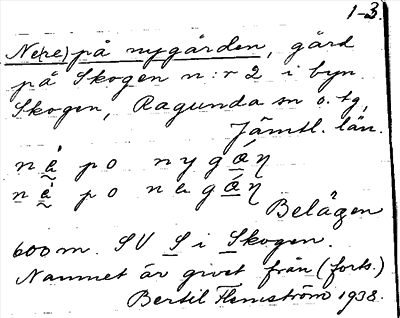 1-3.
Ne(re) på nygården, gård
på Skogen n:r 2 i byn
Skogen, Ragunda sn o. tg,
Jämtl. län.
po nygáŋ
po nagáŋ
Belägen
600 m. SV S i Skogen.
Namnet är givet från (forts.)
Bertil Flemström 1938.